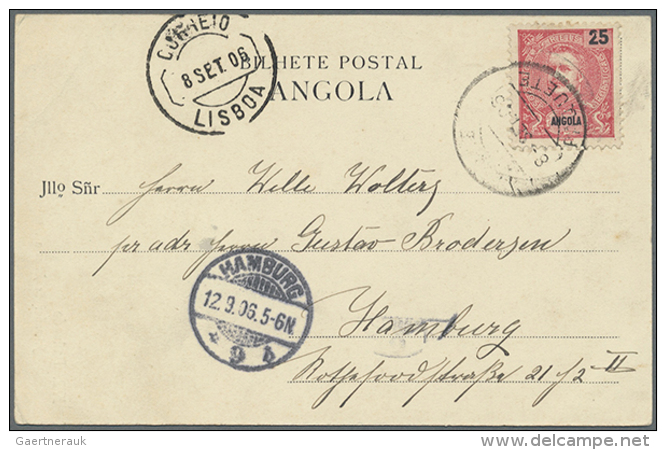 CORREIO
8 SET. 06
LISBOA
BILHETE POSTAL
ANGOLA
25
ANGOLA
Jllo Sñr
Herrn Wille Wolters
pr adr Herrn Gustav Brodersen
HAMBURG
12.9.06.5-6N.
Hamburg
21/2 II
Gaertnerauk
www.delcampe.net